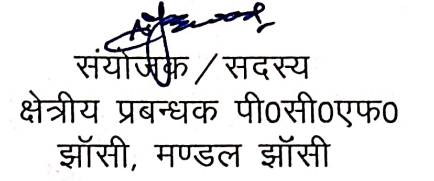 संयोजक / सदस्य
क्षेत्रीय प्रबन्धक पी0सी0एफ0
झॉसी, मण्डल झॉसी